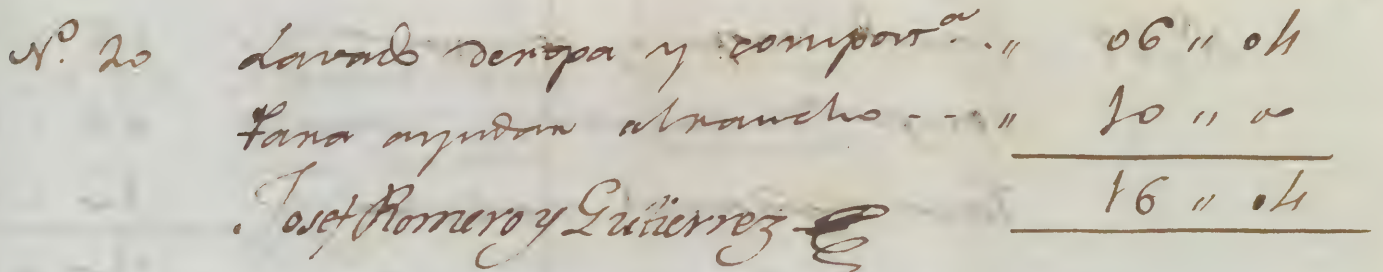 Nº. 20 Lavado deropa y compost.ª .. " 06 " 04
Para ayudar alrancho - - - " 10 " 00
16 " 04
Josef Romero y Gutierrez